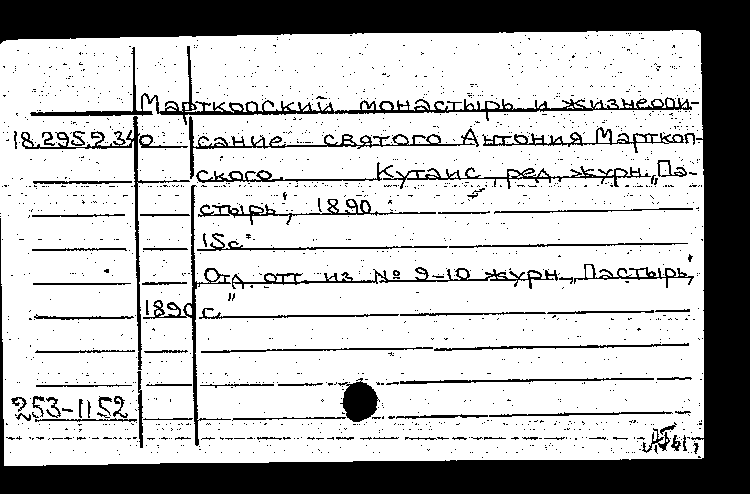 Марткопский монастырь и жизнеопи-
18.295.2.340 сание святого Антония Марткоп-
ского. Кутаис, ред. журн. „Па-
стырь", 1890.
15с.
„Отд. отт. из № 9-10 журн. „Пастырь",
1890 с."
253-1152